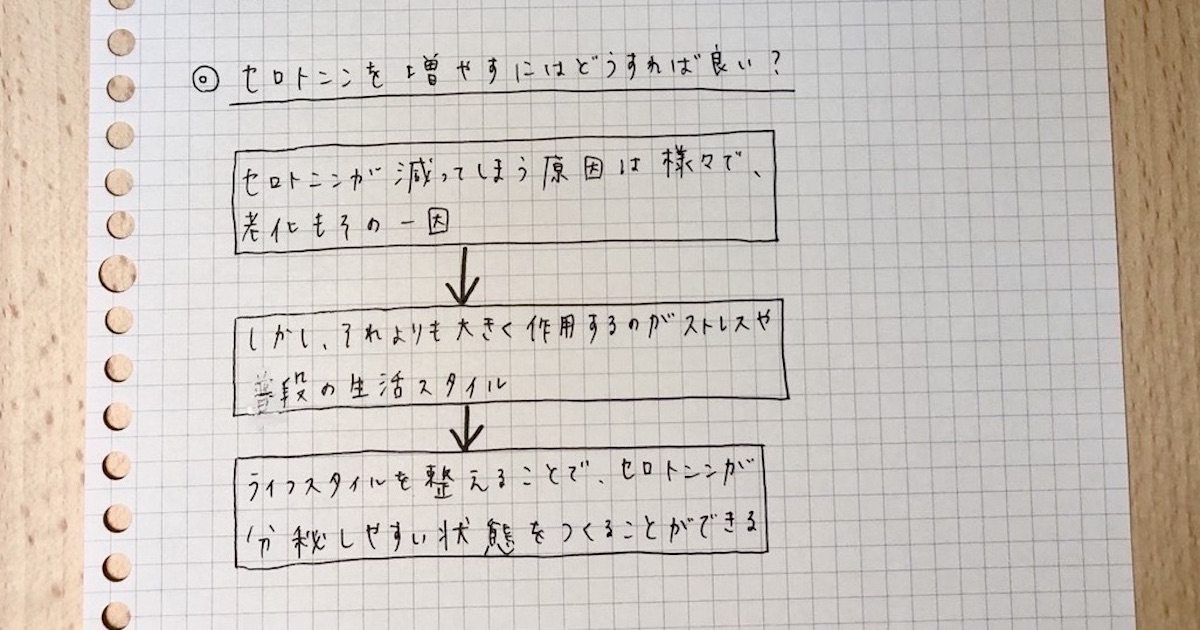 ◎ セロトニンを増やすにはどうすれば良い?
セロトニンが減ってしまう原因は様々で、
老化もその一因
しかし、それよりも大きく作用するのがストレスや
普段の生活スタイル
ライフスタイルを整えることで、セロトニンが
分秘しやすい状態をつくることができる